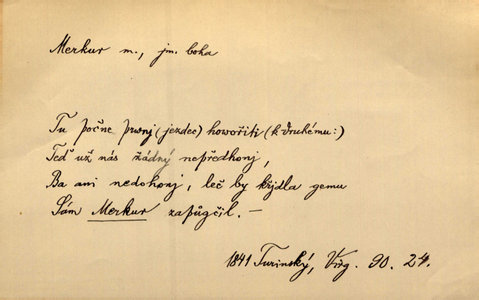 Merkur m., jm. boha
Tu počne prwnj (jezdec) howořiti (k druhému:)
Teď už nás žádný nepředhonj,
Ba ani nedohonj, leč by křjdla gemu
Sám Merkur zapůgčil. —
1841 Turinský, Virg. 90. 24.